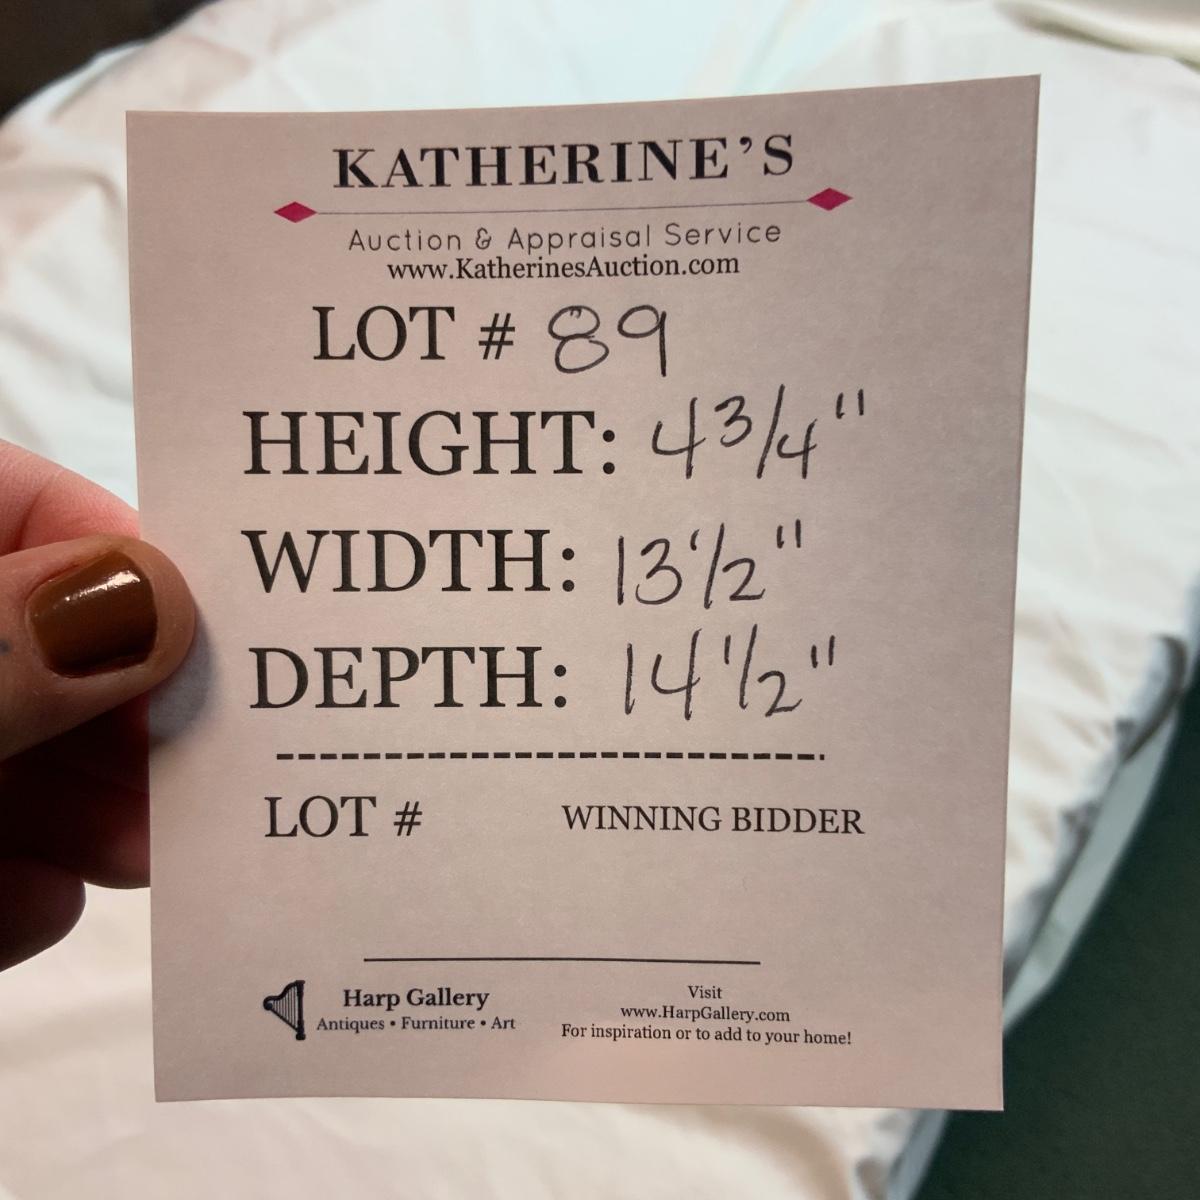 KATHERINE'S
Auction & Appraisal Service
www.KatherinesAuction.com
LOT # 89
HEIGHT: 4 3/4"
WIDTH: 13 1/2"
DEPTH: 14 1/2"
LOT # WINNING BIDDER
Harp Gallery
Antiques • Furniture • Art
Visit
www.HarpGallery.com
For inspiration or to add to your home!